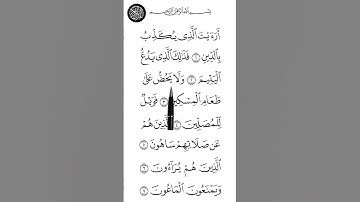 بِسْمِ ٱللَّهِ ٱلرَّحْمَٰنِ ٱلرَّحِيمِ
أَرَءَيْتَ ٱلَّذِى يُكَذِّبُ
بِٱلدِّينِ ١ فَذَٰلِكَ ٱلَّذِى يَدُعُّ
ٱلْيَتِيمَ ٢ وَلَا يَحُضُّ عَلَىٰ
طَعَامِ ٱلْمِسْكِينِ ٣ فَوَيْلٌ
لِّلْمُصَلِّينَ ٤ ٱلَّذِينَ هُمْ
عَن صَلَاتِهِمْ سَاهُونَ ٥
ٱلَّذِينَ هُمْ يُرَآءُونَ ٦
وَيَمْنَعُونَ ٱلْمَاعُونَ ٧